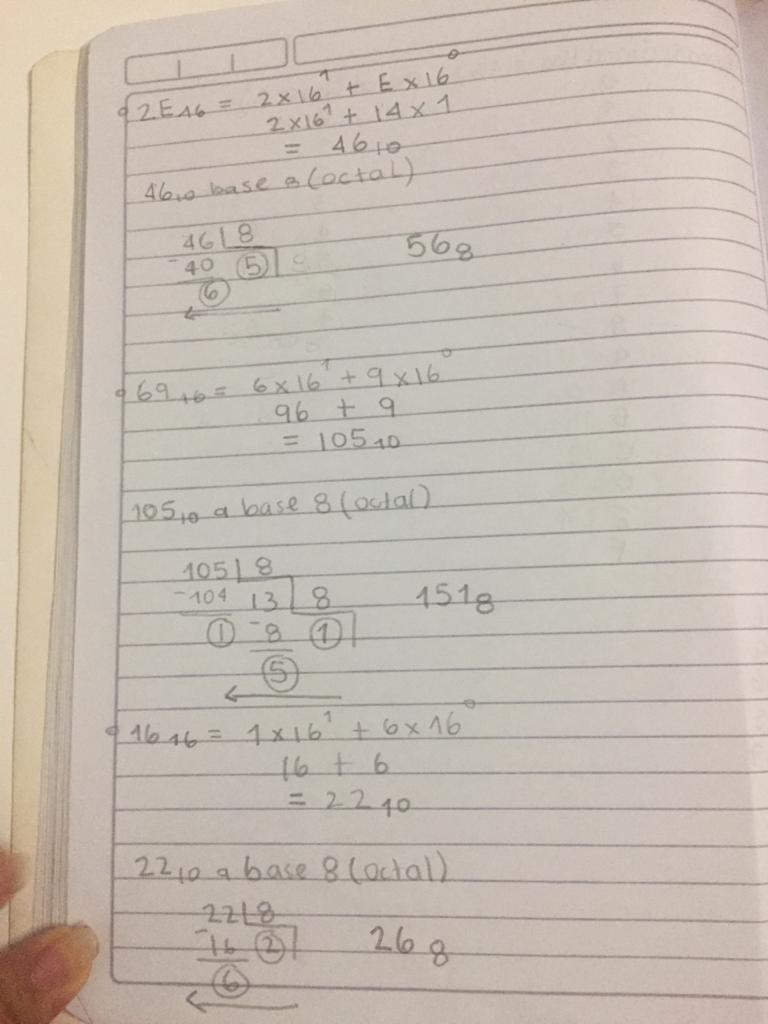 2E₁₆ = 2x16¹ + Ex16⁰
2x16¹ + 14x1
= 46₁₀
46₁₀ base 8 (octal)
46 8
-40 5
6
56₈
69₁₆ = 6x16¹ + 9x16⁰
96 + 9
= 105₁₀
105₁₀ a base 8 (octal)
105 8
-104 13 8
1 -8 1
5
151₈
16₁₆ = 1x16¹ + 6x16⁰
16 + 6
= 22₁₀
22₁₀ a base 8 (octal)
22 8
-16 2
6
26₈